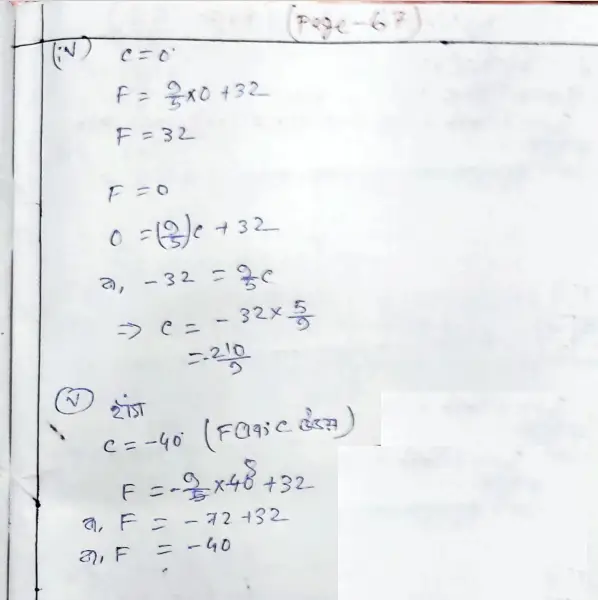 (Page-67)
(iv) C = 0
F = 9/5 × 0 + 32
F = 32
F = 0
0 = (9/5)C + 32
বা, -32 = 9/5 C
⇒ C = - 32 × 5/9
= -210/9
(v) হ্যাঁ
C = -40 (F এবং C উভয়)
F = -9/5 × 40 + 32
বা, F = -72 + 32
বা, F = -40